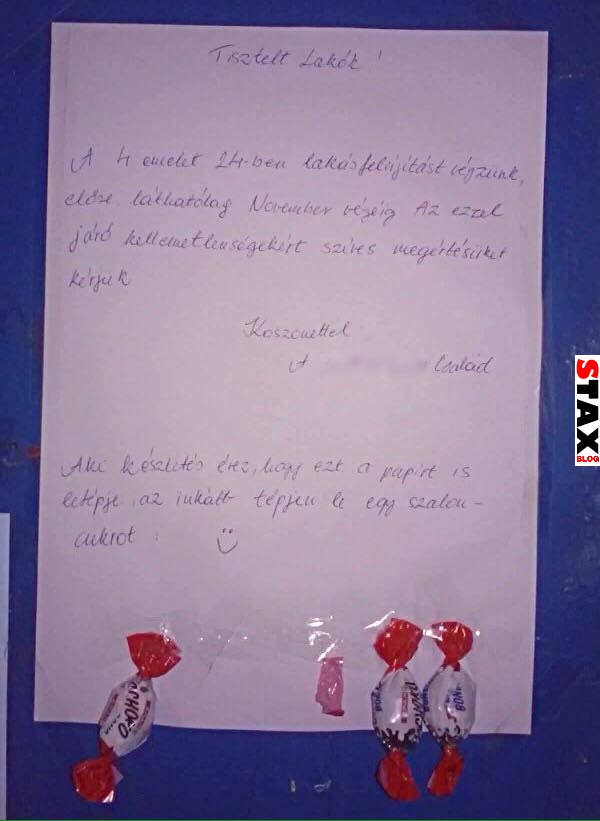 Tisztelt Lakók!
A 4 emelet 24-ben lakásfelújítást végzünk,
előre láthatólag November végéig Az ezzel
járó kellemetlenségekért szíves megértésüket
kérjük
Köszönettel
A Család
Aki késztetés érez, hogy ezt a papírt is
letépje, az inkább tépjen le egy szalon-
cukrot.
STAX
BLOG
CHOCO
BON